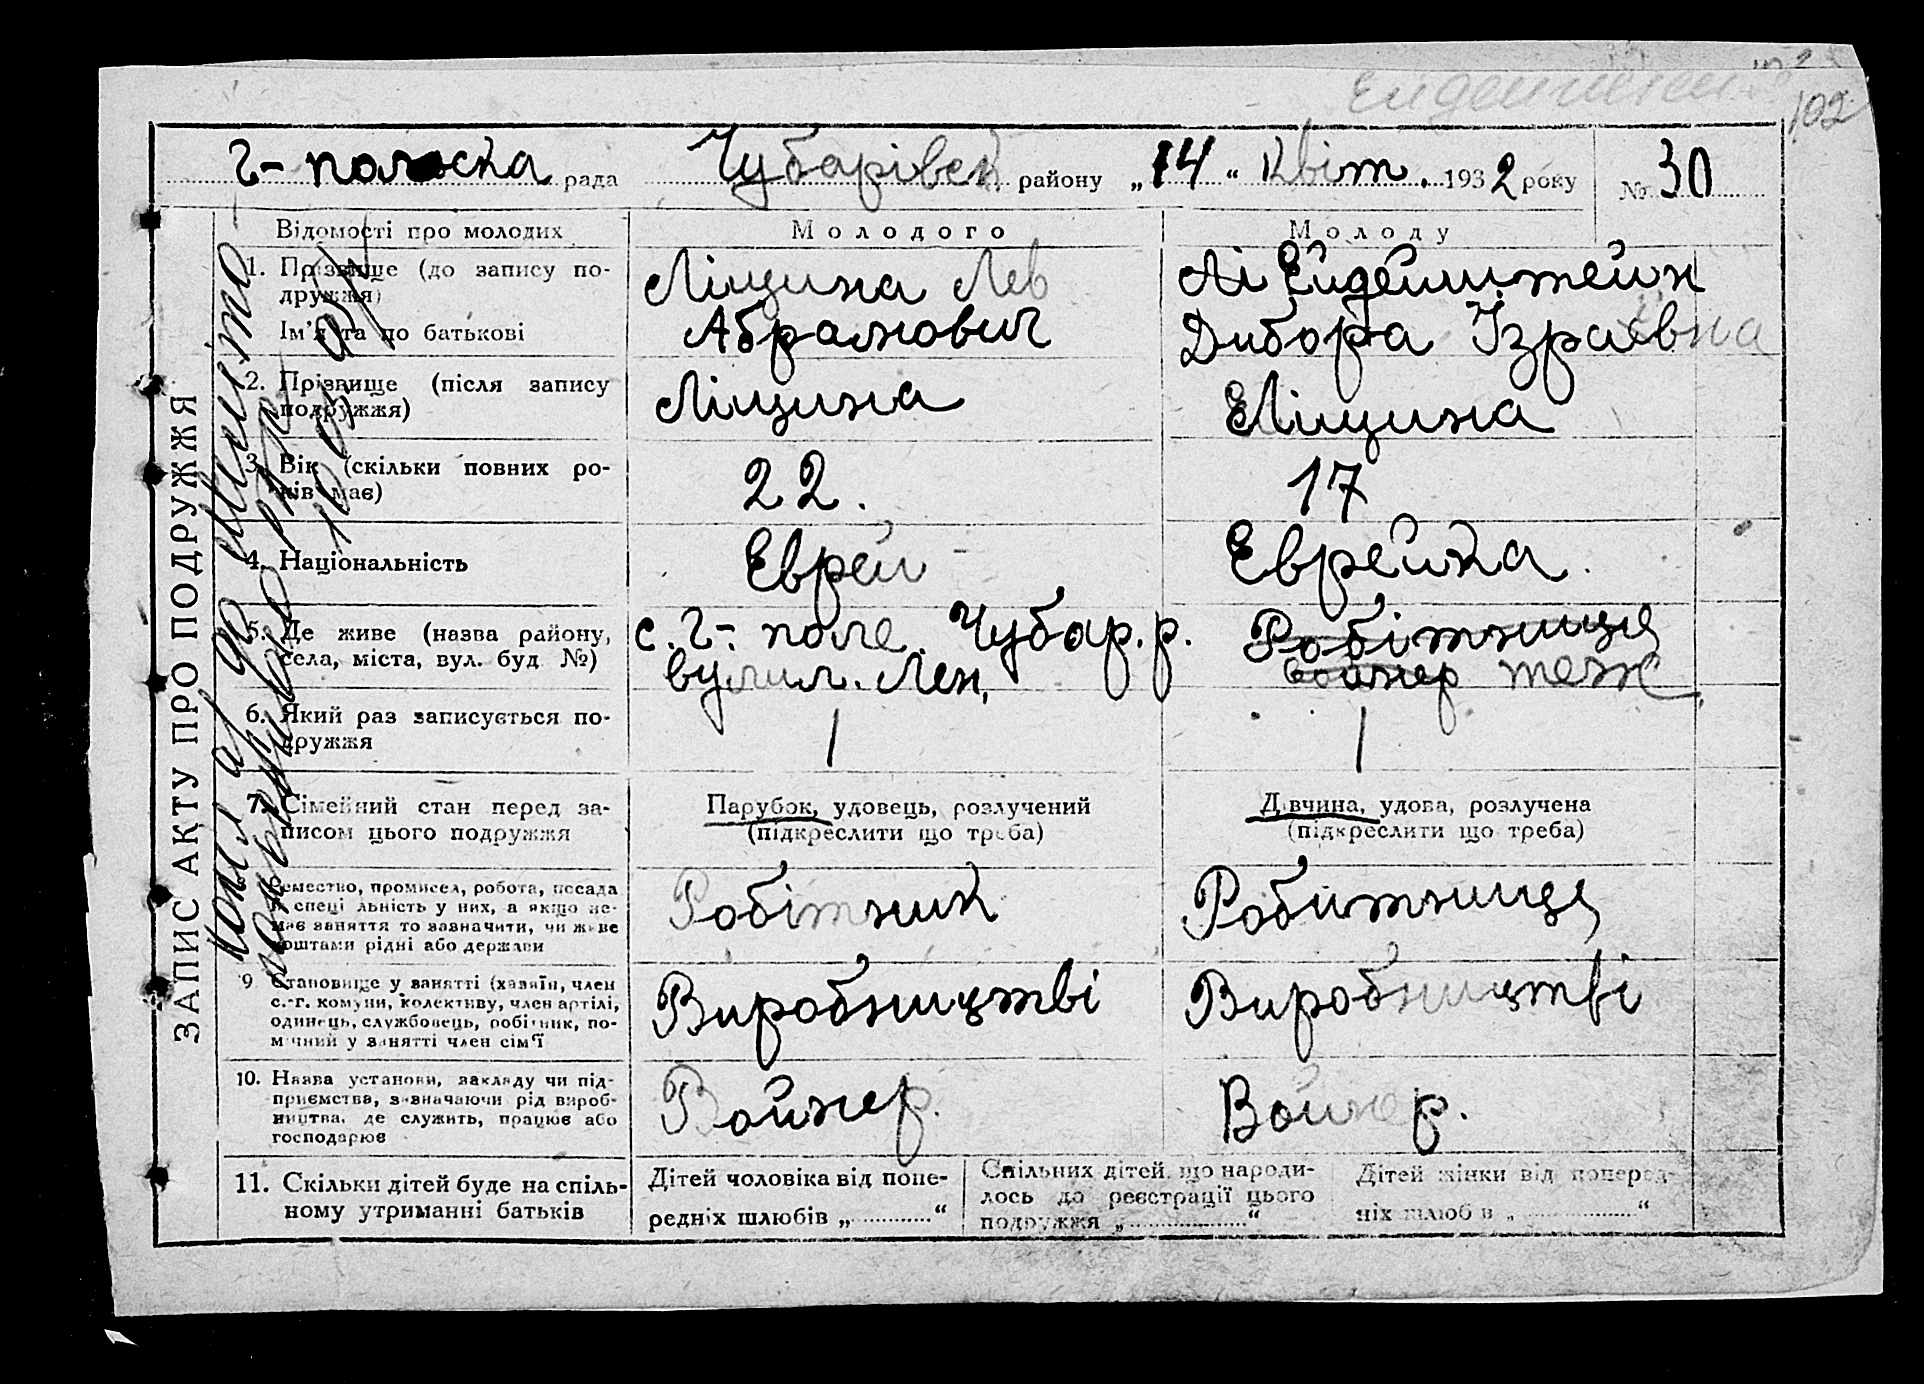 102
Г-польска рада Чубарівськ району „14“ Квіт. 1932 року № 30
ЗАПИС АКТУ ПРО ПОДРУЖЖЯ
Відомості про молодих
Молодого
Молоду
1. Прізвище (до запису по-
дружжя)
Ім'я та по батькові
Ліщина Лев
Абрамович
Лі Ейденштейн
Дибора Ізраєвна
2. Прізвище (після запису
подружжя)
Ліщина
Ліщина
3. Вік (скільки повних ро-
ків має)
22.
17
4. Національність
Еврей
Еврейка.
5. Де живе (назва району,
села, міста, вул. буд №)
с. Г-поле Чубар. р.
вулиц. Лен,
Робітниця
Войнер теж
6. Який раз записується по-
дружжя
1
1
7. Сімейний стан перед за-
писом цього подружжя
Парубок, удовець, розлучений
(підкреслити що треба)
Дівчина, удова, розлучена
(підкреслити що треба)
Ремество, промисел, робота, посада
спеціяльність у них, а якщо не-
має заняття то зазначити, чи живе
коштами рідні або держави
Робітник
Робитниця
9 Становище у занятті (хазяїн, член
с.-г. комуни, колективу, член артілі,
одинець, службовець, робітник, по-
мічний у занятті член сім'ї
Виробництві
Виробництві
10. Назва установи, закладу чи під-
приємства, зазначаючи рід вироб-
ництва, де служить, працює або
господарює
Войнер.
Войнер.
11. Скільки дітей буде на спіль-
ному утриманні батьків
Дітей чоловіка від попе-
редніх шлюбів „ “
Спільних дітей, що народи-
лось до реєстрації цього
подружжя „ “
Дітей жінки від поперед-
ніх шлюбів „ “